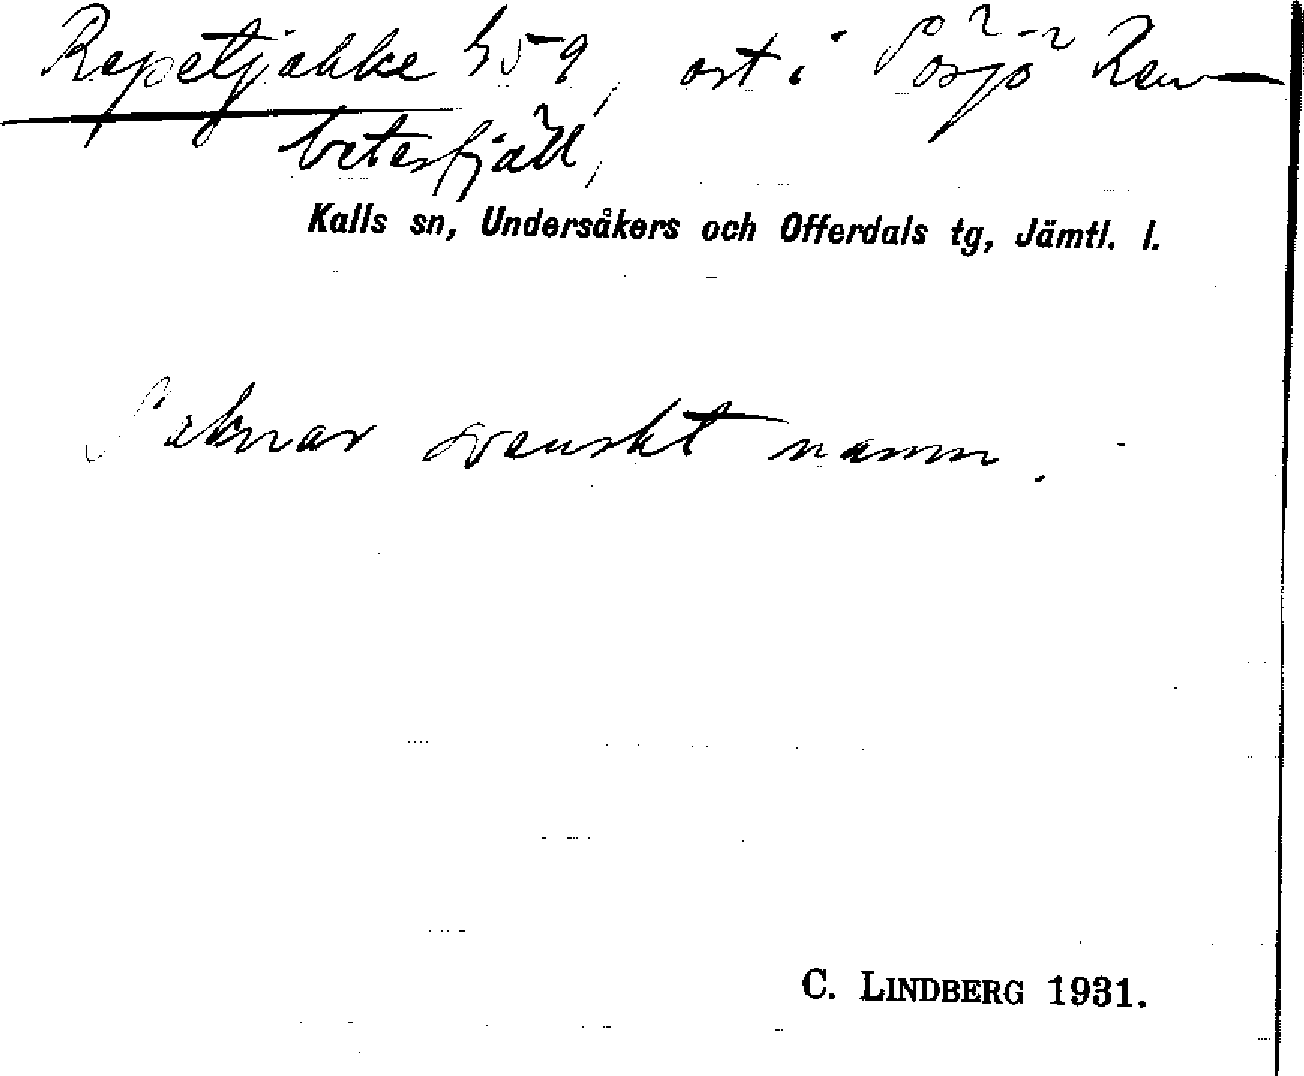 Repetjakke h59, ort i Sösjö Ren-
betesfjäll,
Kalls sn, Undersåkers och Offerdals tg, Jämtl. l.
Saknar svenskt namn.
C. LINDBERG 1931.